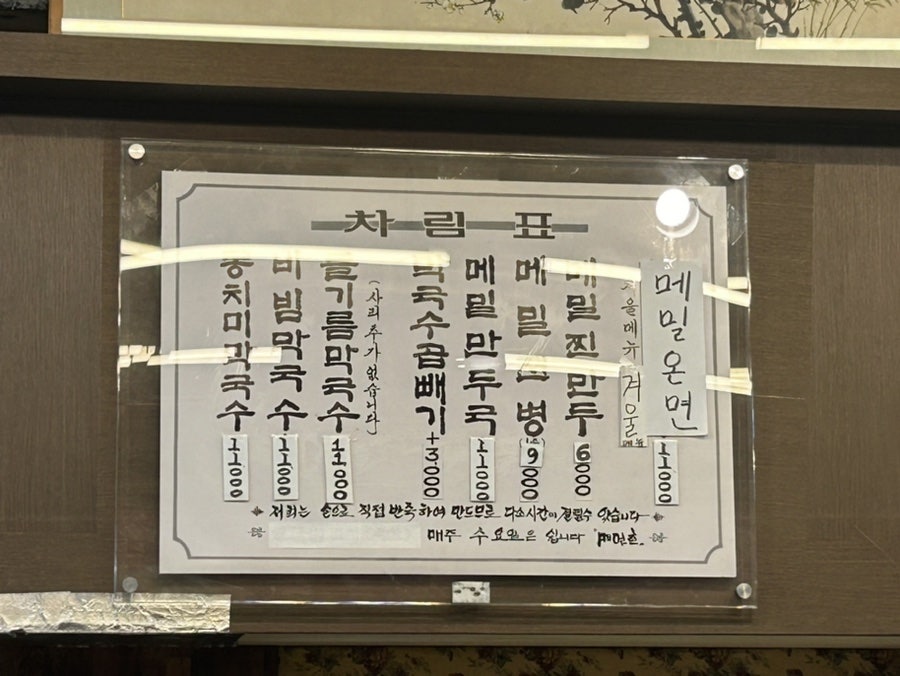 차림표
동치미막국수 11000
비빔막국수 11000
들기름막국수 11000
(사리 추가 없습니다)
막국수곱빼기 +3000
메밀만두국 11000
메밀 병 9000
메밀찐만두 6000
겨울
메밀온면 11000
저희는 손으로 직접 반죽하여 만드므로 다소시간이 걸릴수 있습니다
매주 수요일은 쉽니다